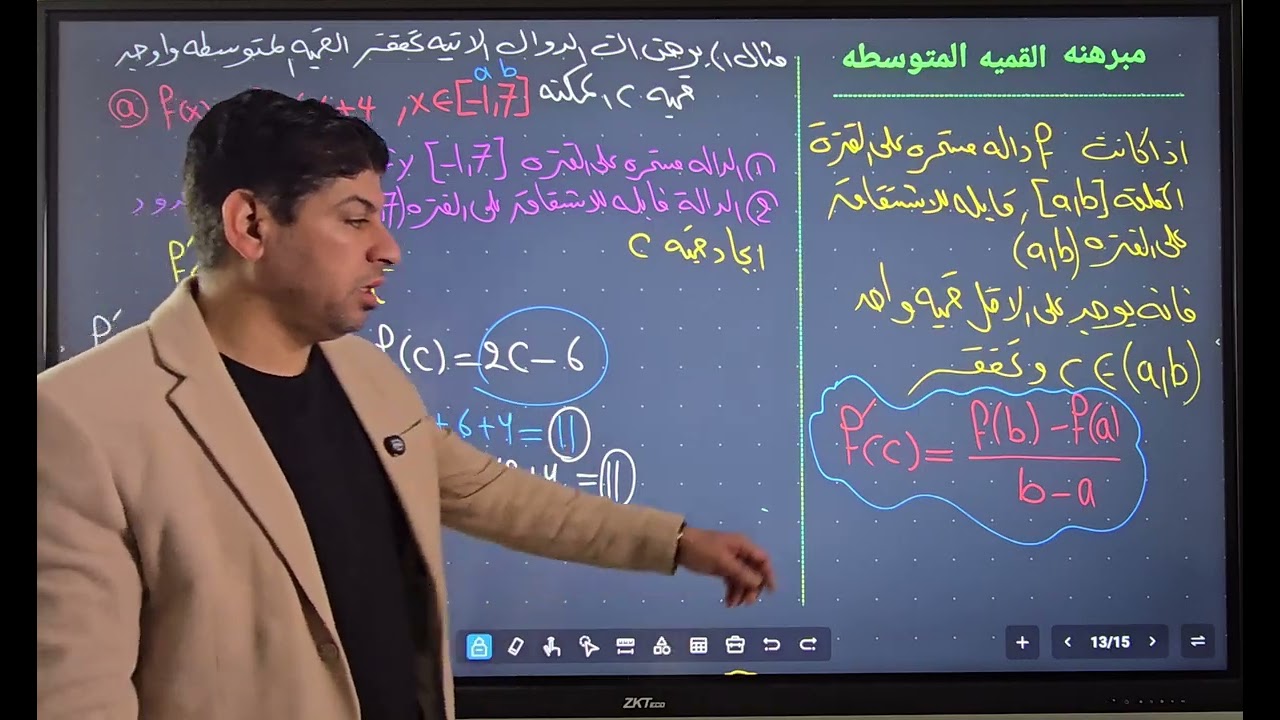 مبرهنه القميه المتوسطه
اذا كانت f داله مستمره على الفترة
المغلقه [a,b] , قابله للاشتقاقة
على الفتره (a,b)
فانه يوجد على الاقل قميه واحد
c ∈ (a,b) وتحقق
f′(c) = f(b) - f(a) / b - a
مثال ١) برهن ان الدوال الاتيه تحقق القميه المتوسطه واوجد
قميه c الممكنه
a b
ⓐ f(x +4 , x ∈ [-1,7]
① الداله مستمره على الفتره [-1,7] لا
② الدالة قابله للاشتقاقة على الفتره ,7) دود
ايجاد قميه c
f′
f′ f(c) = 2c - 6
+ 6 + 4 = 11
+ 4 = 11
13/15
ZKTeco